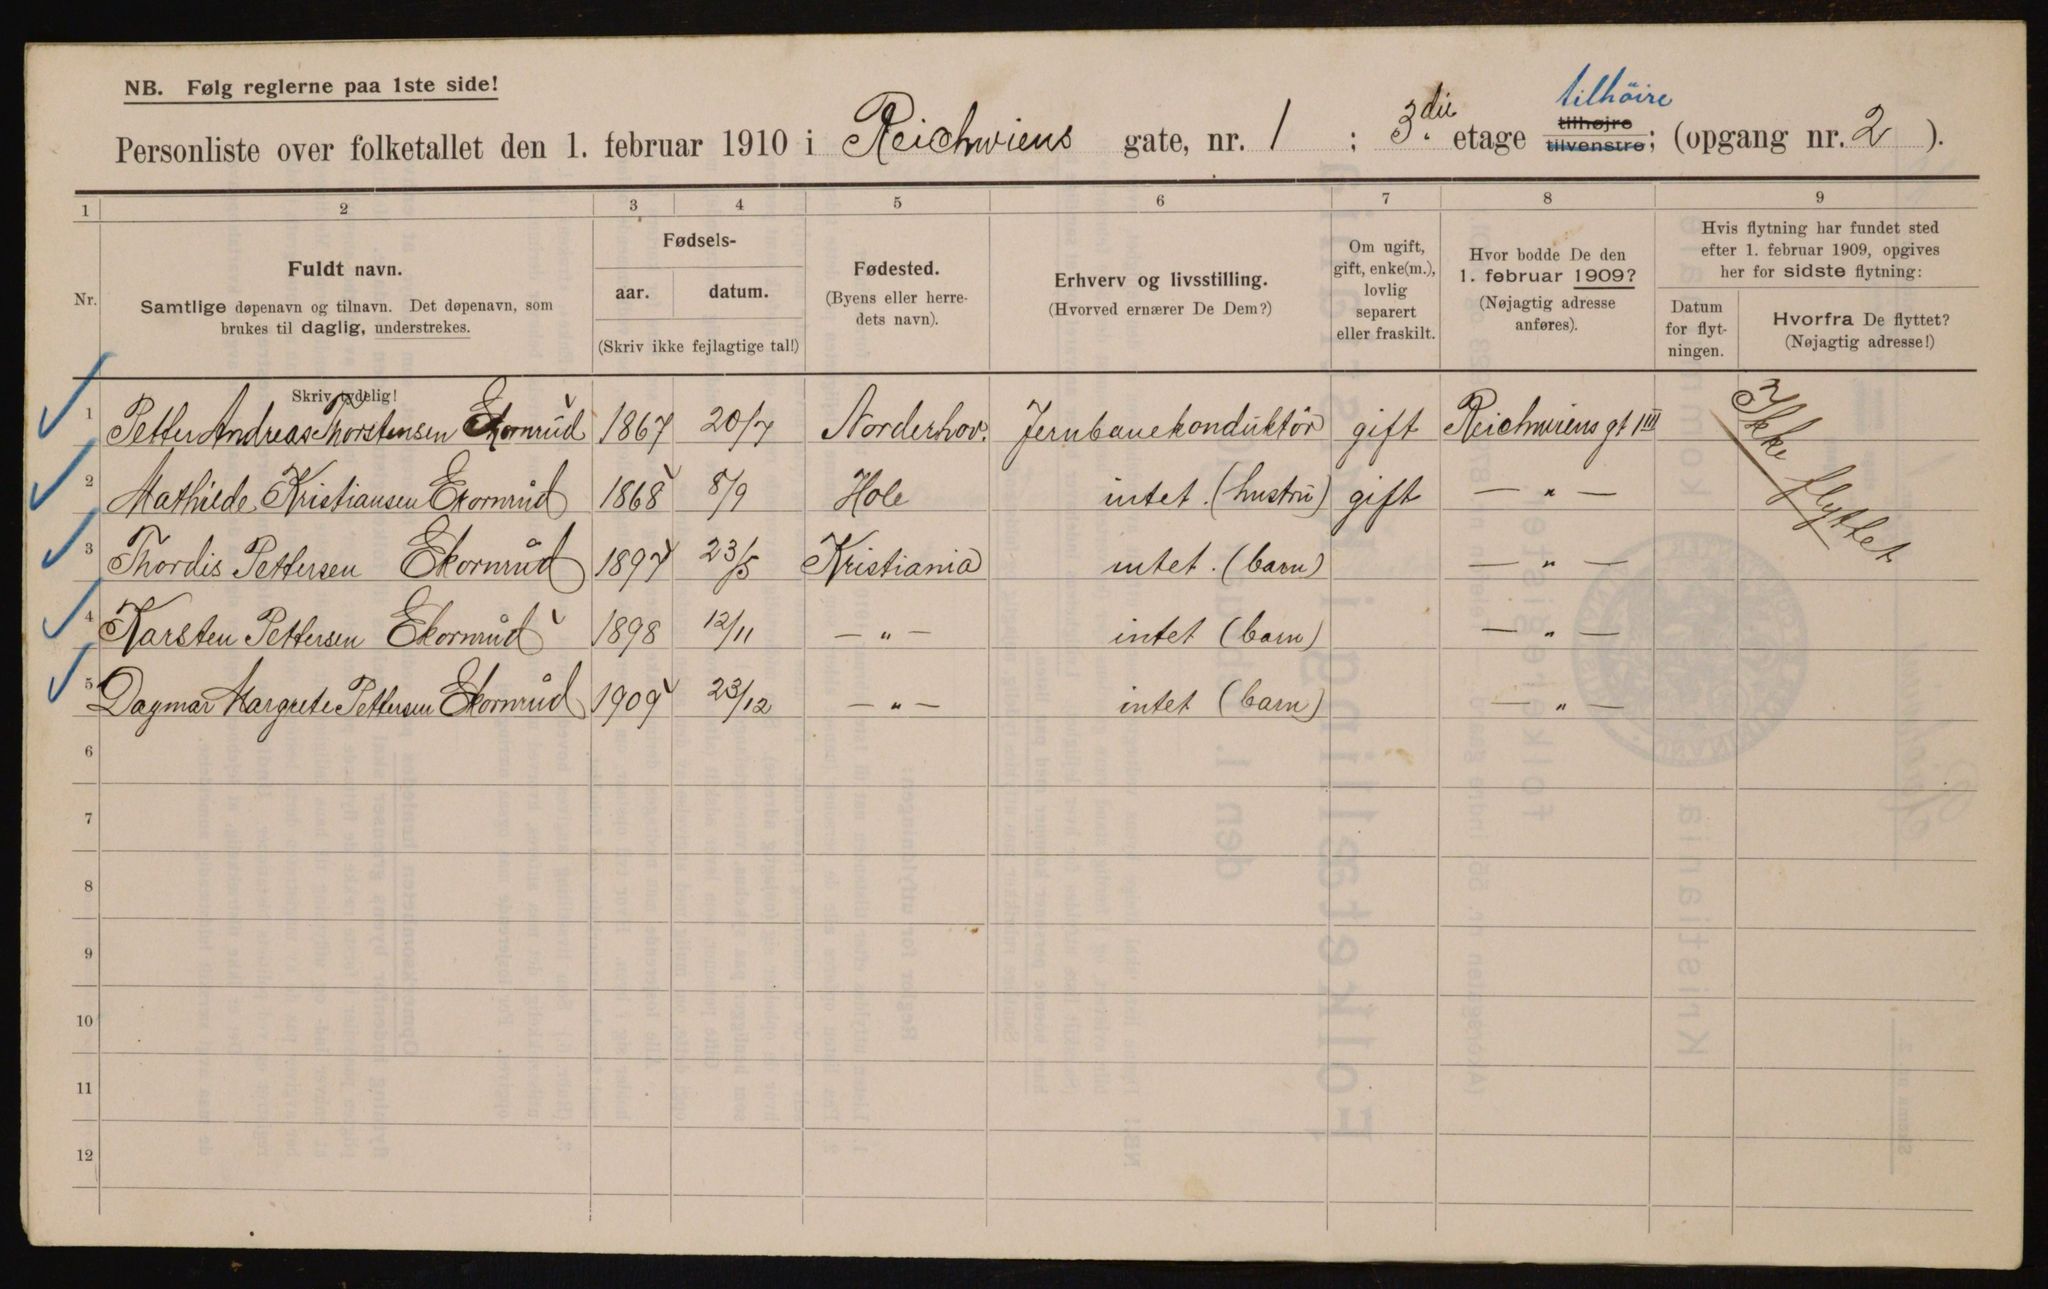 NB. Følg reglerne paa 1ste side!
tilhöire
Personliste over folketallet den 1. februar 1910 i Reichwiens gate, nr. 1 ; 3.die etage tilhøjre tilvenstre; (opgang nr. 2 ).
1 2 3 4 5 6 7 8 9
Nr.
Fuldt navn.
Samtlige døpenavn og tilnavn. Det døpenavn, som
brukes til daglig, understrekes.
Fødsels-
aar. datum.
(Skriv ikke fejlagtige tal!)
Fødested.
(Byens eller herre-
dets navn).
Erhverv og livsstilling.
(Hvorved ernærer De Dem?)
Om ugift,
gift, enke(m.),
lovlig
separert
eller fraskilt.
Hvor bodde De den
1. februar 1909?
(Nøjagtig adresse
anføres).
Hvis flytning har fundet sted
efter 1. februar 1909, opgives
her for sidste flytning:
Datum
for flyt-
ningen.
Hvorfra De flyttet?
(Nøjagtig adresse!)
Skriv tydelig!
1 Petter Andreas Thorstensen Ekornrud 1867 20/7 Norderhov. Jernbanekonduktör gift Reichwiens gt 1 III Ikke flyttet
2 Mathilde Kristiansen Ekornrud 1868 8/9 Hole intet. (hustru) gift — " —
3 Thordis Pettersen Ekornrud 1897 23/5 Kristiania intet. (barn) — " —
4 Karsten Pettersen Ekornrud 1898 12/11 — " — intet (barn) — " —
5 Dagmar Margrete Pettersen Ekornrud 1909 23/12 — " — intet (barn) — " —
6
7
8
9
10
11
12